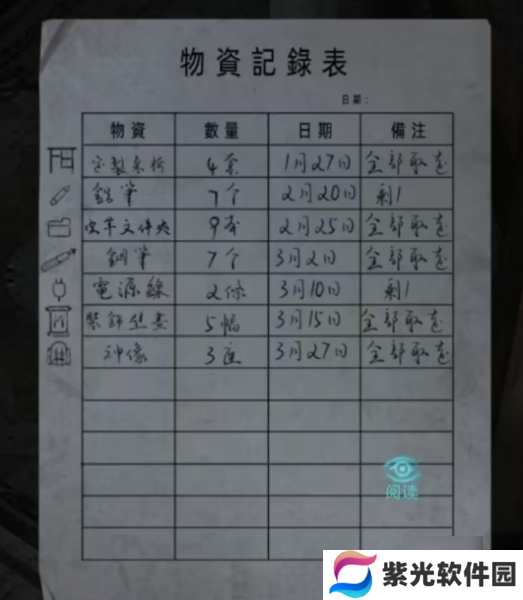 物資記錄表
日期：
物資 數量 日期 備注
定製桌椅 4套 1月27日 全部取走
鉛筆 7个 2月20日 剩1
皮革文件夾 9本 2月25日 全部取走
鋼筆 7个 3月2日 全部取走
電源線 2條 3月10日 剩1
裝飾壁畫 5幅 3月15日 全部取走
神像 3座 3月27日 全部取走
阅读
紫光软件园